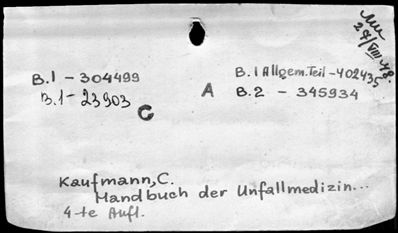 27/VIII 48.
B.1 – 304499
B.1 Allgem. Teil – 402435
B.1 – 23903
A
B.2 – 345934
C
Kaufmann, C.
Handbuch der Unfallmedizin...
4-te Aufl.